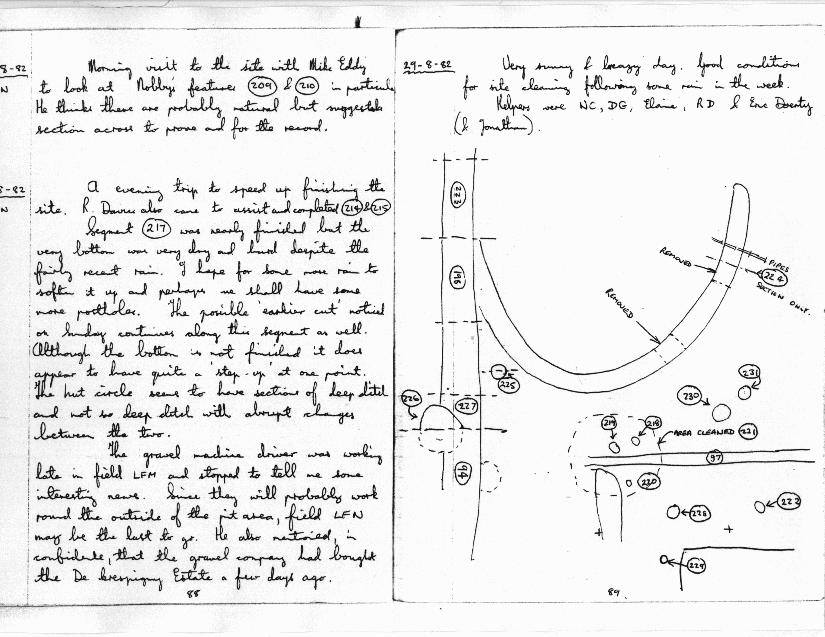 8-82
N
Morning visit to the site with Mike Eddy
to look at Nobby's features 209 & 210 in particular
He thinks these are probably natural but suggests a
section across to prove and for the record.
8-82
N
A evening trip to speed up finishing the
site. R. Davies also came to assist and completed 214 & 215
Segment 217 was nearly finished but the
very bottom was very dry and hard despite the
fairly recent rain. I hope for some more rain to
soften it up and perhaps we shall have some
more postholes. The possible 'earlier cut' noticed
on Sunday continues along this segment as well.
Although the bottom is not finished it does
appear to have quite a 'step-up' at one point.
The hut circle seems to have sections of deep ditch
and not so deep ditch with abrupt changes
between the two.
The gravel machine driver was working
late in field LFM and stopped to tell me some
interesting news. Since they will probably work
round the outside of the pit area, field LFN
may be the last to go. He also mentioned, in
confidence, that the gravel company had bought
the De Crespigny Estate a few days ago.
88
29-8-82
Very sunny & breezy day. Good conditions
for site cleaning following some rain in the week.
Helpers were NC, DG, Elaine, RD & Eric Doenty
(& Jonathan).
223
196
REMOVED
PIPES
224
SECTION ONLY.
REMOVED
225
226
227
94
231
230
219
218
AREA CLEANED 221
97
220
228
222
229
89.